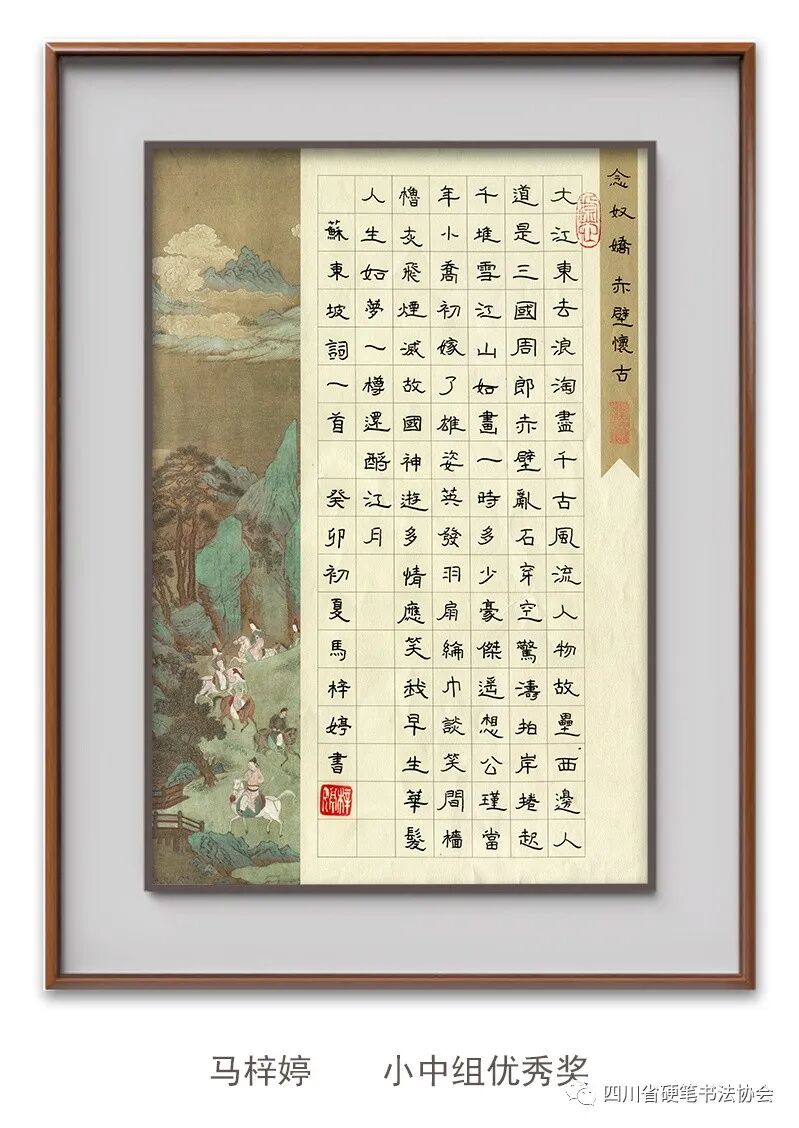 念奴嬌 赤壁懷古
大江東去浪淘盡千古風流人物故壘西邊人
道是三國周郎赤壁亂石穿空驚濤拍岸捲起
千堆雪江山如畫一時多少豪傑遥想公瑾當
年小喬初嫁了雄姿英發羽扇綸巾談笑間檣
櫓灰飛煙滅故國神遊多情應笑我早生華髮
人生如夢一樽還酹江月
蘇東坡詞一首 癸卯初夏馬梓婷書
马梓婷 小中组优秀奖
四川省硬笔书法协会